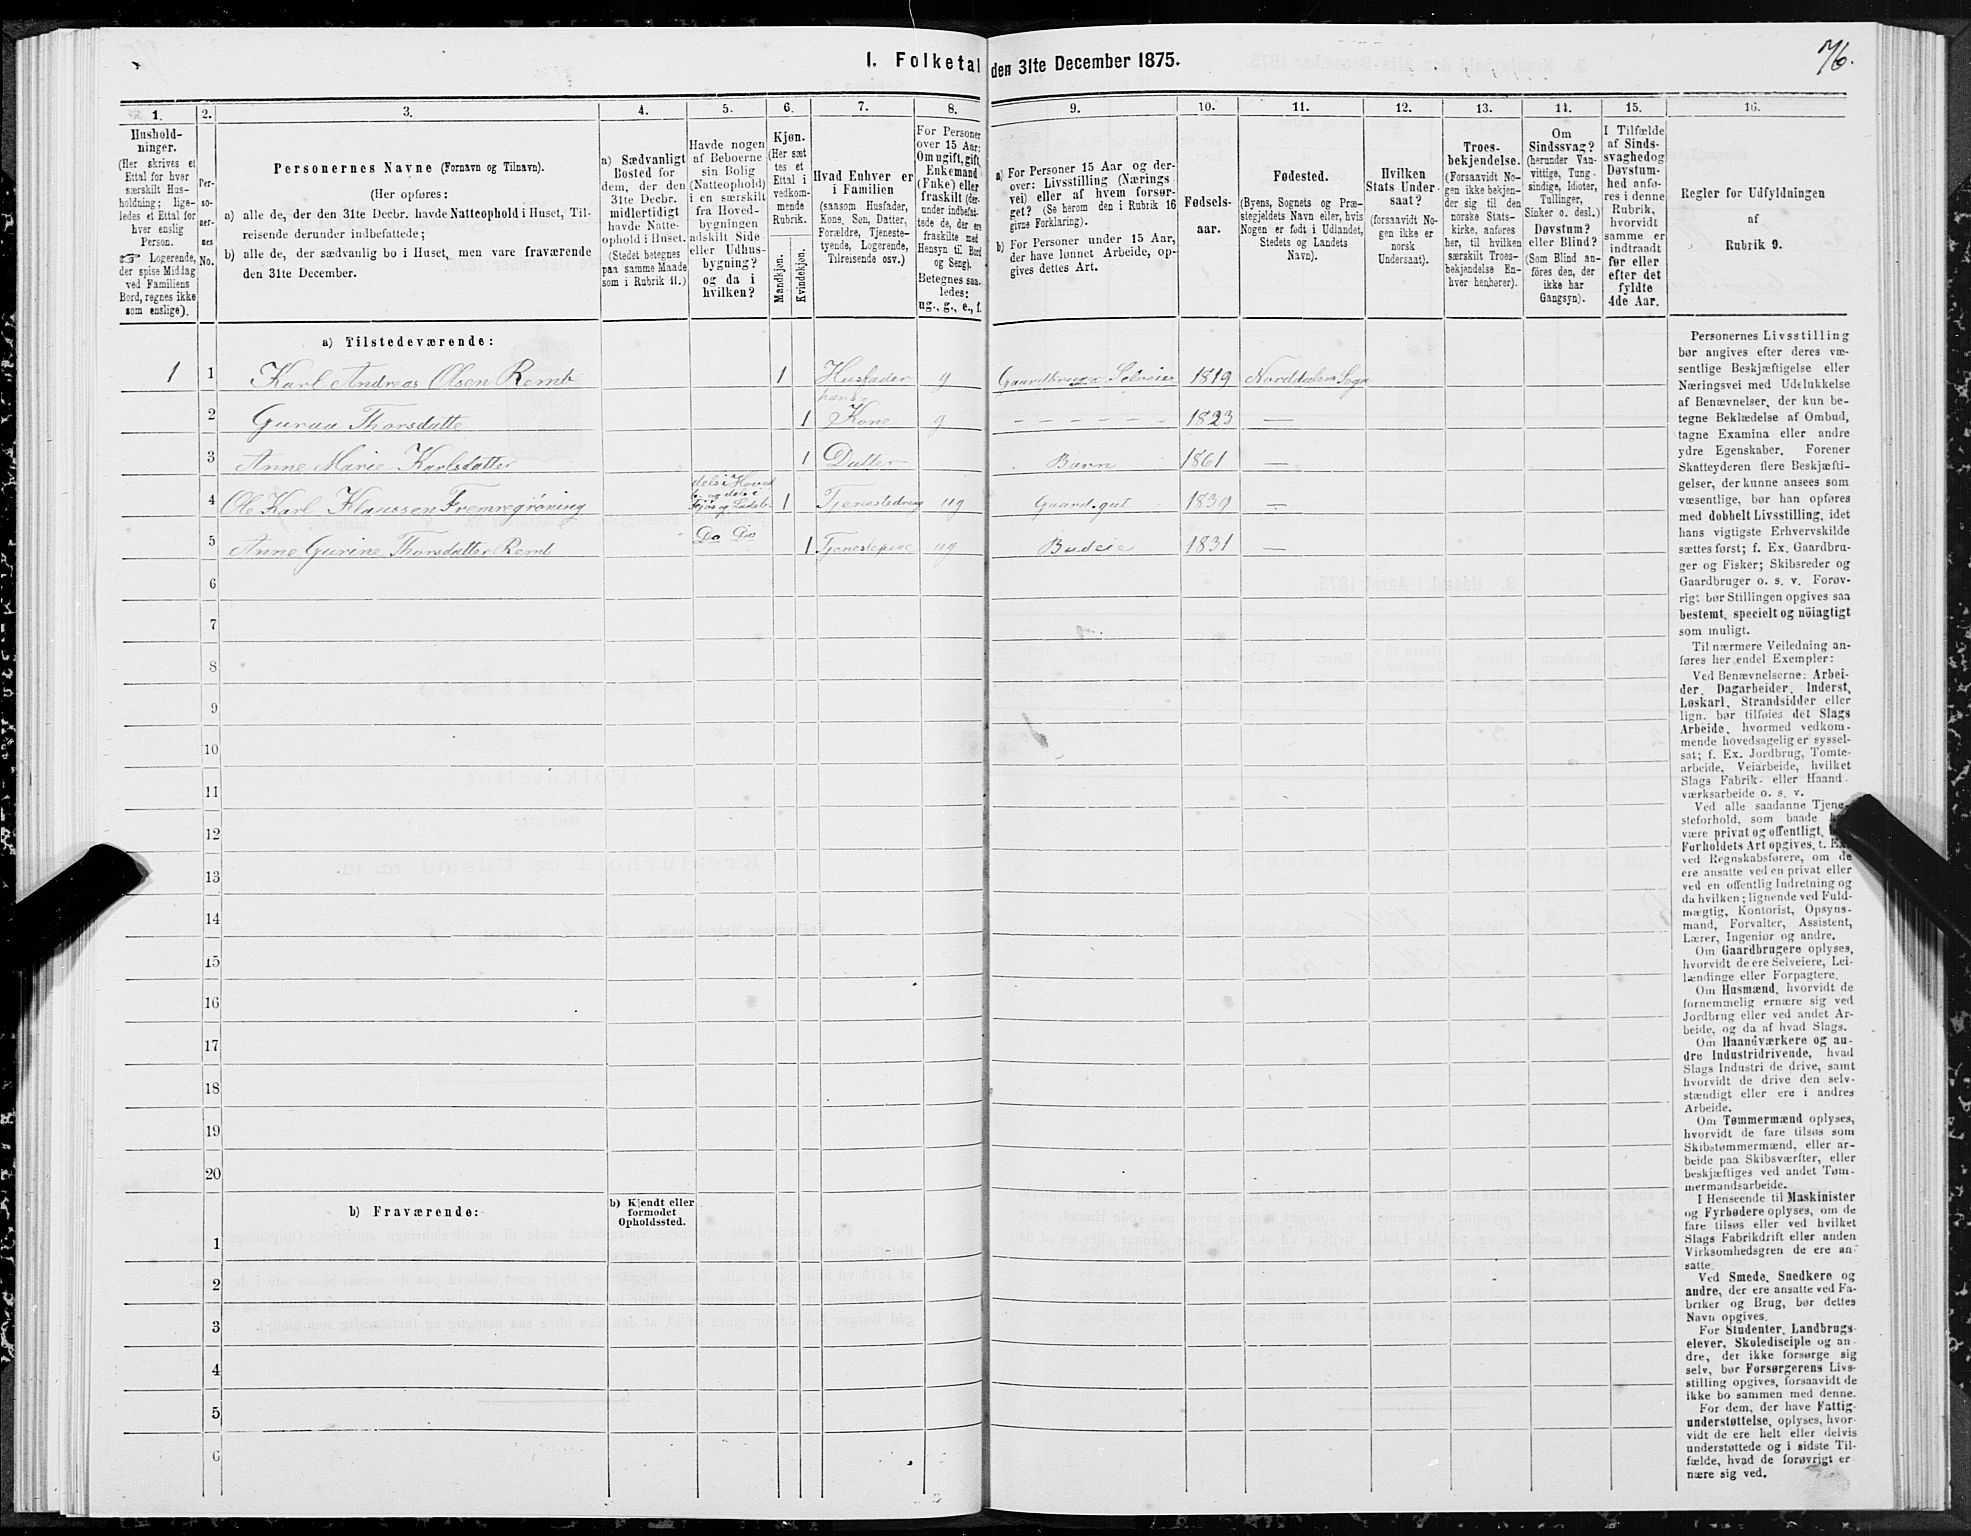 1. Folketal den 31te December 1875.
76.
1.
2.
3.
4.
5.
6.
7.
8.
9.
10.
11.
12.
13.
14.
15.
16.
Hushold-
ninger.
(Her skrives et
Ettal for hver
særskilt Hus-
holdning; lige-
ledes et Ettal for
hver enslig
Person.
☞ Logerende,
der spise Middag
ved Familiens
Bord, regnes ikke
som enslige).
Per-
so-
ner-
nes
No.
Personernes Navne (Fornavn og Tilnavn).
(Her opføres:
a) alle de, der den 31te Decbr. havde Natteophold i Huset, Til-
reisende derunder indbefattede;
b) alle de, der sædvanlig bo i Huset, men vare fraværende
den 31te December.
a) Sædvanligt
Bosted for
dem, der den
31te Decbr.
midlertidigt
havde Natte-
ophold i Huset.
(Stedet betegnes
paa samme Maade
som i Rubrik 11.)
Havde nogen
af Beboerne
sin Bolig
(Natteophold)
i en særskilt
fra Hoved-
bygningen
adskilt Side-
eller Udhus-
bygning?
og da i
hvilken?
Kjøn.
(Her sæt
tes et
Ettal i
vedkom-
mende
Rubrik.
Mandkjøn.
Kvindekjøn.
Hvad Enhver er
i Familien
(saasom Husfader,
Kone, Søn, Datter,
Forældre, Tjeneste-
tyende, Logerende,
Tilreisende osv.)
For Personer
over 15 Aar:
Om ugift, gift,
Enkemand
(Enke) eller
fraskilt (der-
under indbefat-
tede de, der ere
fraskilte med
Hensyn til Bord
og Seng).
Betegnes saa-
ledes:
ug., g., e., f.
a) For Personer 15 Aar og der-
over: Livsstilling (Nærings
vei) eller af hvem forsør-
get? (Se herom den i Rubrik 16
givne Forklaring).
b) For Personer under 15 Aar,
der have lønnet Arbeide, op-
gives dettes Art.
Fødsels-
aar.
Fødested.
(Byens, Sognets og Præ-
stegjeldets Navn eller, hvis
Nogen er født i Udlandet,
Stedets og Landets
Navn).
Hvilken
Stats Under-
saat?
(forsaavidt No-
gen ikke er
norsk
Undersaat).
Troes-
bekjendelse.
(Forsaavidt No-
gen ikke bekjen-
der sig til den
norske Stats-
kirke, anføres
her, til hvilken
særskilt Troes-
bekjendelse En-
hver henhører).
Om
Sindssvag?
(herunder Van-
vittige, Tung-
sindige, Idioter,
Tullinger,
Sinker o. desl.)
Døvstum?
eller Blind?
(Som Blind an-
føres den, der
ikke har
Gangsyn).
I Tilfælde
af Sinds-
svaghedog
Døvstum-
hed anfø-
res i denne
Rubrik,
hvorvidt
samme er
indtraadt
før eller
efter det
fyldte
4de Aar.
Regler for Udfyldningen
af
Rubrik 9.
a) Tilstedeværende:
1 1 Karl Andreas Olsen Remb 1 Husfader g Gaardbruger Selveier 1819 Norddalens Sogn
2 Gurau Thorsdatte 1 hans Kone g — — — — — — 1823 —
3 Anne Marie Karlsdatter 1 Datter Barn 1861 —
4 Ole Karl Klaussen Fremregrøning 1 Tjenestedreng ug Gaardsgut 1839 —
5 Anne Gurine Thorsdatter Remb Do Do 1 Tjenestepige ug Budeie 1831 —
6
7
8
9
10
11
12
13
14
15
16
17
18
19
20
b) Fraværende:
b) Kjendt eller
formodet
Opholdssted.
1
2
3
4
5
6
Personernes Livsstilling
bør angives efter deres væ-
sentlige Beskjæftigelse eller
Næringsvei med Udelukkelse
af Benævnelser, der kun be-
tegne Beklædelse af Ombud,
tagne Examina eller andre
ydre Egenskaber. Forener
Skatteyderen flere Beskjæfti-
gelser, der kunne ansees som
væsentlige, bør han opføres
med dobbelt Livsstilling, idet
hans vigtigste Erhvervskilde
sættes først; f. Ex. Gaardbru-
ger og Fisker; Skibsreder og
Gaardbruger o. s. v. Forøv-
rigt bør Stillingen opgives saa
bestemt, specielt og nöiagtigt
som muligt.
Til nærmere Veiledning an-
føres her endel Exempler:
Ved Benævnelserne: Arbei-
der, Dagarbeider, Inderst,
Løskarl, Strandsidder eller
lign. bør tilføies det Slags
Arbeide, hvormed vedkom-
mende hovedsagelig er syssel-
sat; f. Ex. Jordbrug, Tomte-
arbeide, Veiarbeide, hvilket
Slags Fabrik- eller Haand-
værksarbeide o. s. v.
Ved alle saadanne Tjene-
steforhold, som baade
være privat og offentligt,
Forholdets Art opgives, t. Ex.
ved Regnskabsførere, om de
ere ansatte ved en privat eller
ved en offentlig Indretning og
da hvilken; lignende ved Fuld-
mægtig, Kontorist, Opsyns-
mand, Forvalter, Assistent,
Lærer, Ingeniør og andre.
Om Gaardbrugere oplyses,
hvorvidt de ere Selveiere, Lei-
lændinge eller Forpagtere.
Om Husmænd, hvorvidt de
fornemmelig ernære sig ved
Jordbrug eller ved andet Ar-
beide, og da af hvad Slags.
Om Haandværkere og an-
dre Industridrivende, hvad
Slags Industri de drive, samt
hvorvidt de drive den selv-
stændigt eller ere i andres
Arbeide.
Om Tømmermænd oplyses,
hvorvidt de fare tilsøs som
Skibstømmermænd, eller ar-
beide paa Skibsværfter, eller
beskjæftiges ved andet Tøm-
mermandsarbeide.
I Henseende til Maskinister
og Fyrbødere oplyses, om de
fare tilsøs eller ved hvilket
Slags Fabrikdrift eller anden
Virksomhedsgren de ere an-
satte.
Ved Smede, Snedkere og
andre, der ere ansatte ved Fa-
briker og Brug, bør dettes
Navn opgives.
For Studenter, Landbrugs-
elever, Skoledisciple og an-
dre, der ikke forsørge sig
selv, bør Forsørgerens Livs-
stilling opgives, forsaavidt de
ikke bo sammen med denne.
For dem, der have Fattig-
understøttelse, oplyses, hvor-
vidt de ere helt eller delvis
understøttede og i sidste Til-
fælde, hvad de forøvrigt er-
nære sig ved.